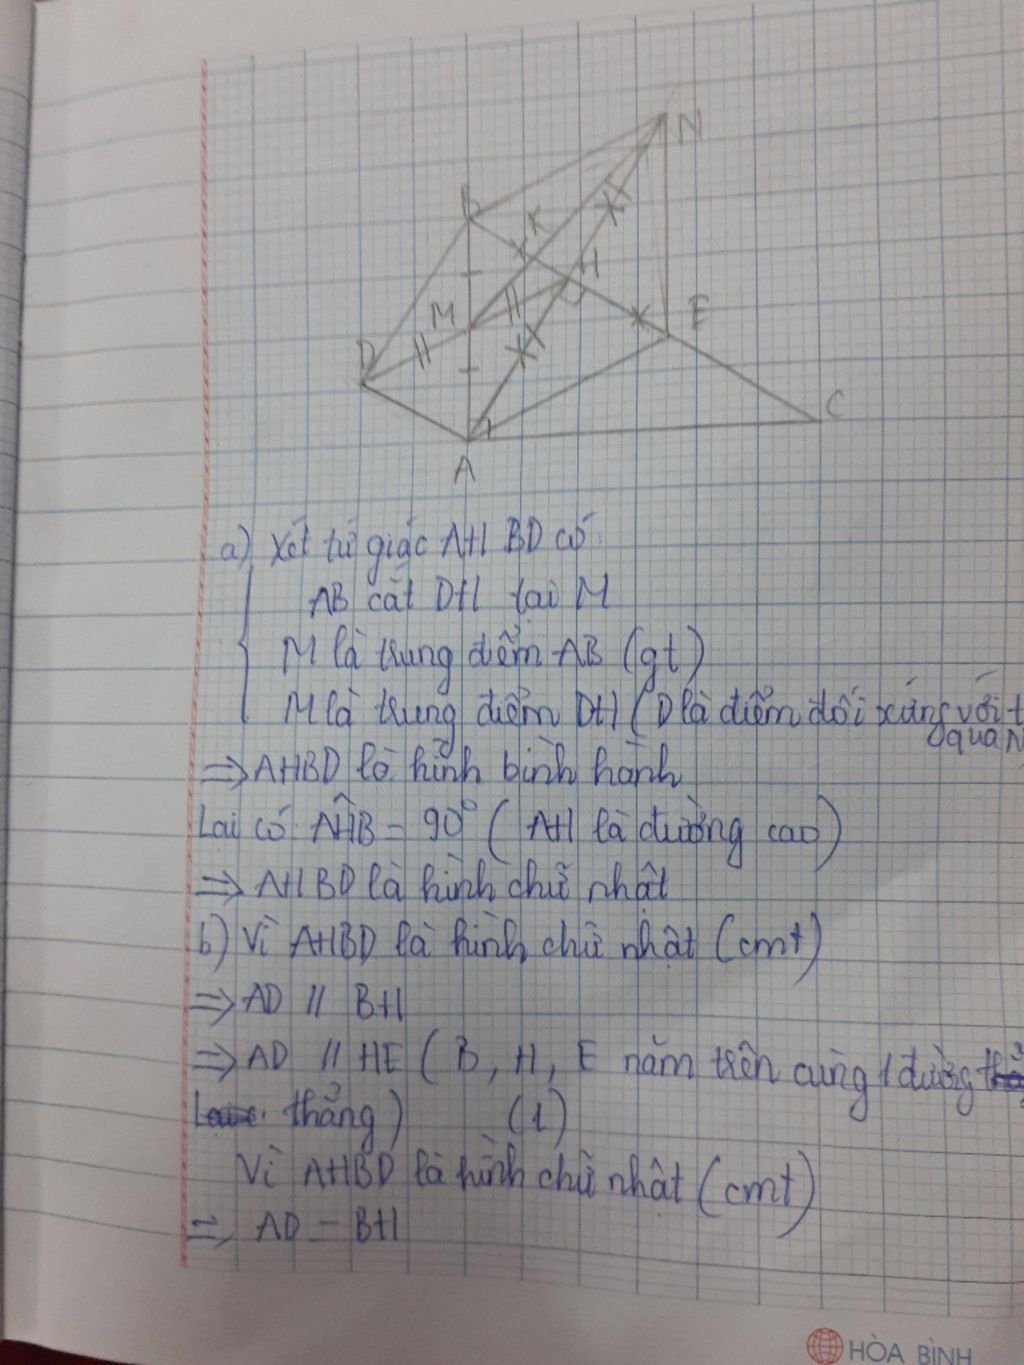 N
B
K
H
M
E
D
C
A
a) Xét tứ giác AHBD có
AB cắt DH tại M
M là trung điểm AB (gt)
M là trung điểm DH (D là điểm đối xứng với
qua
⇒ AHBD là hình bình hành
Lại có AĤB = 90° (AH là đường cao)
⇒ AHBD là hình chữ nhật
b) Vì AHBD là hình chữ nhật (cmt)
⇒ AD // BH
⇒ AD // HE (B, H, E nằm trên cùng 1 đường
thẳng) (1)
Vì AHBD là hình chữ nhật (cmt)
⇒ AD = BH
HÒA BÌNH